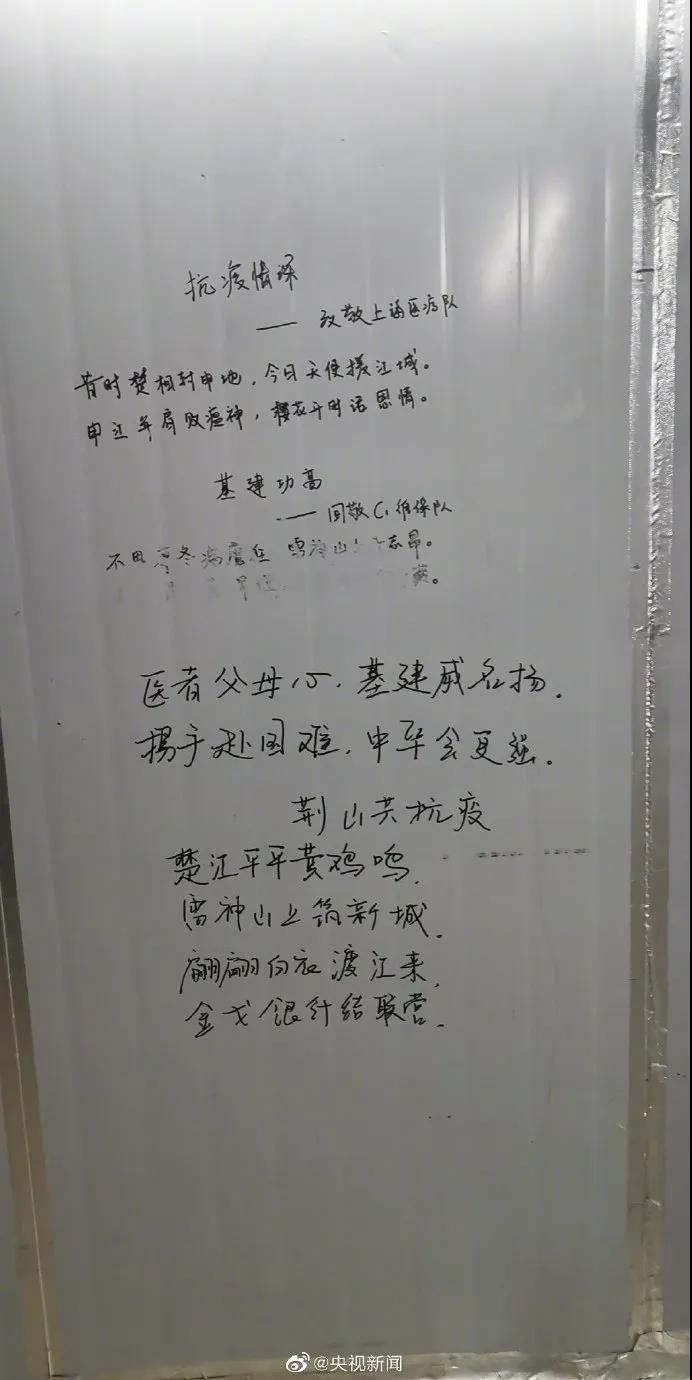 抗疫情深
—— 致敬上海医疗队
昔时楚相封申地，今日天使援江城。
申江并肩败瘟神，樱花开时话恩情。
基建功高
—— 回敬C1维保队
不因寒冬病魔 雷神山上 志昂。
医者父母心，基建威名扬.
携手赴国难，中华会更强.
荆山共抗疫
楚江平平黄鸡鸣,
雷神山上筑新城,
翩翩白衣渡江来,
金戈银针结联营.
@央视新闻